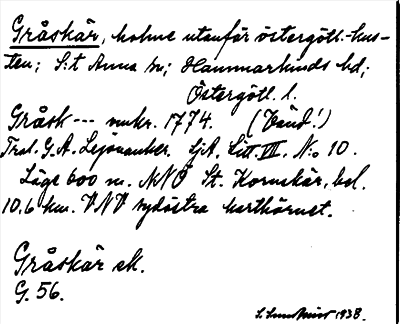 Gråskär, holme utanför östergötl.-kus-
ten; S:t Anna sn; Hammarkinds hd;
Östergötl. l.
Gråsk--- mskr. 1774. (Vänd!)
Trol. G. A. Lejonanker. SjA. Litt. VII. N:o 10.
Läge 600 m. NNÖ St. Kornskär, bel.
10.6 km. VNV sydöstra karthörnet.
Gråskär ek.
G. 56.
1938.